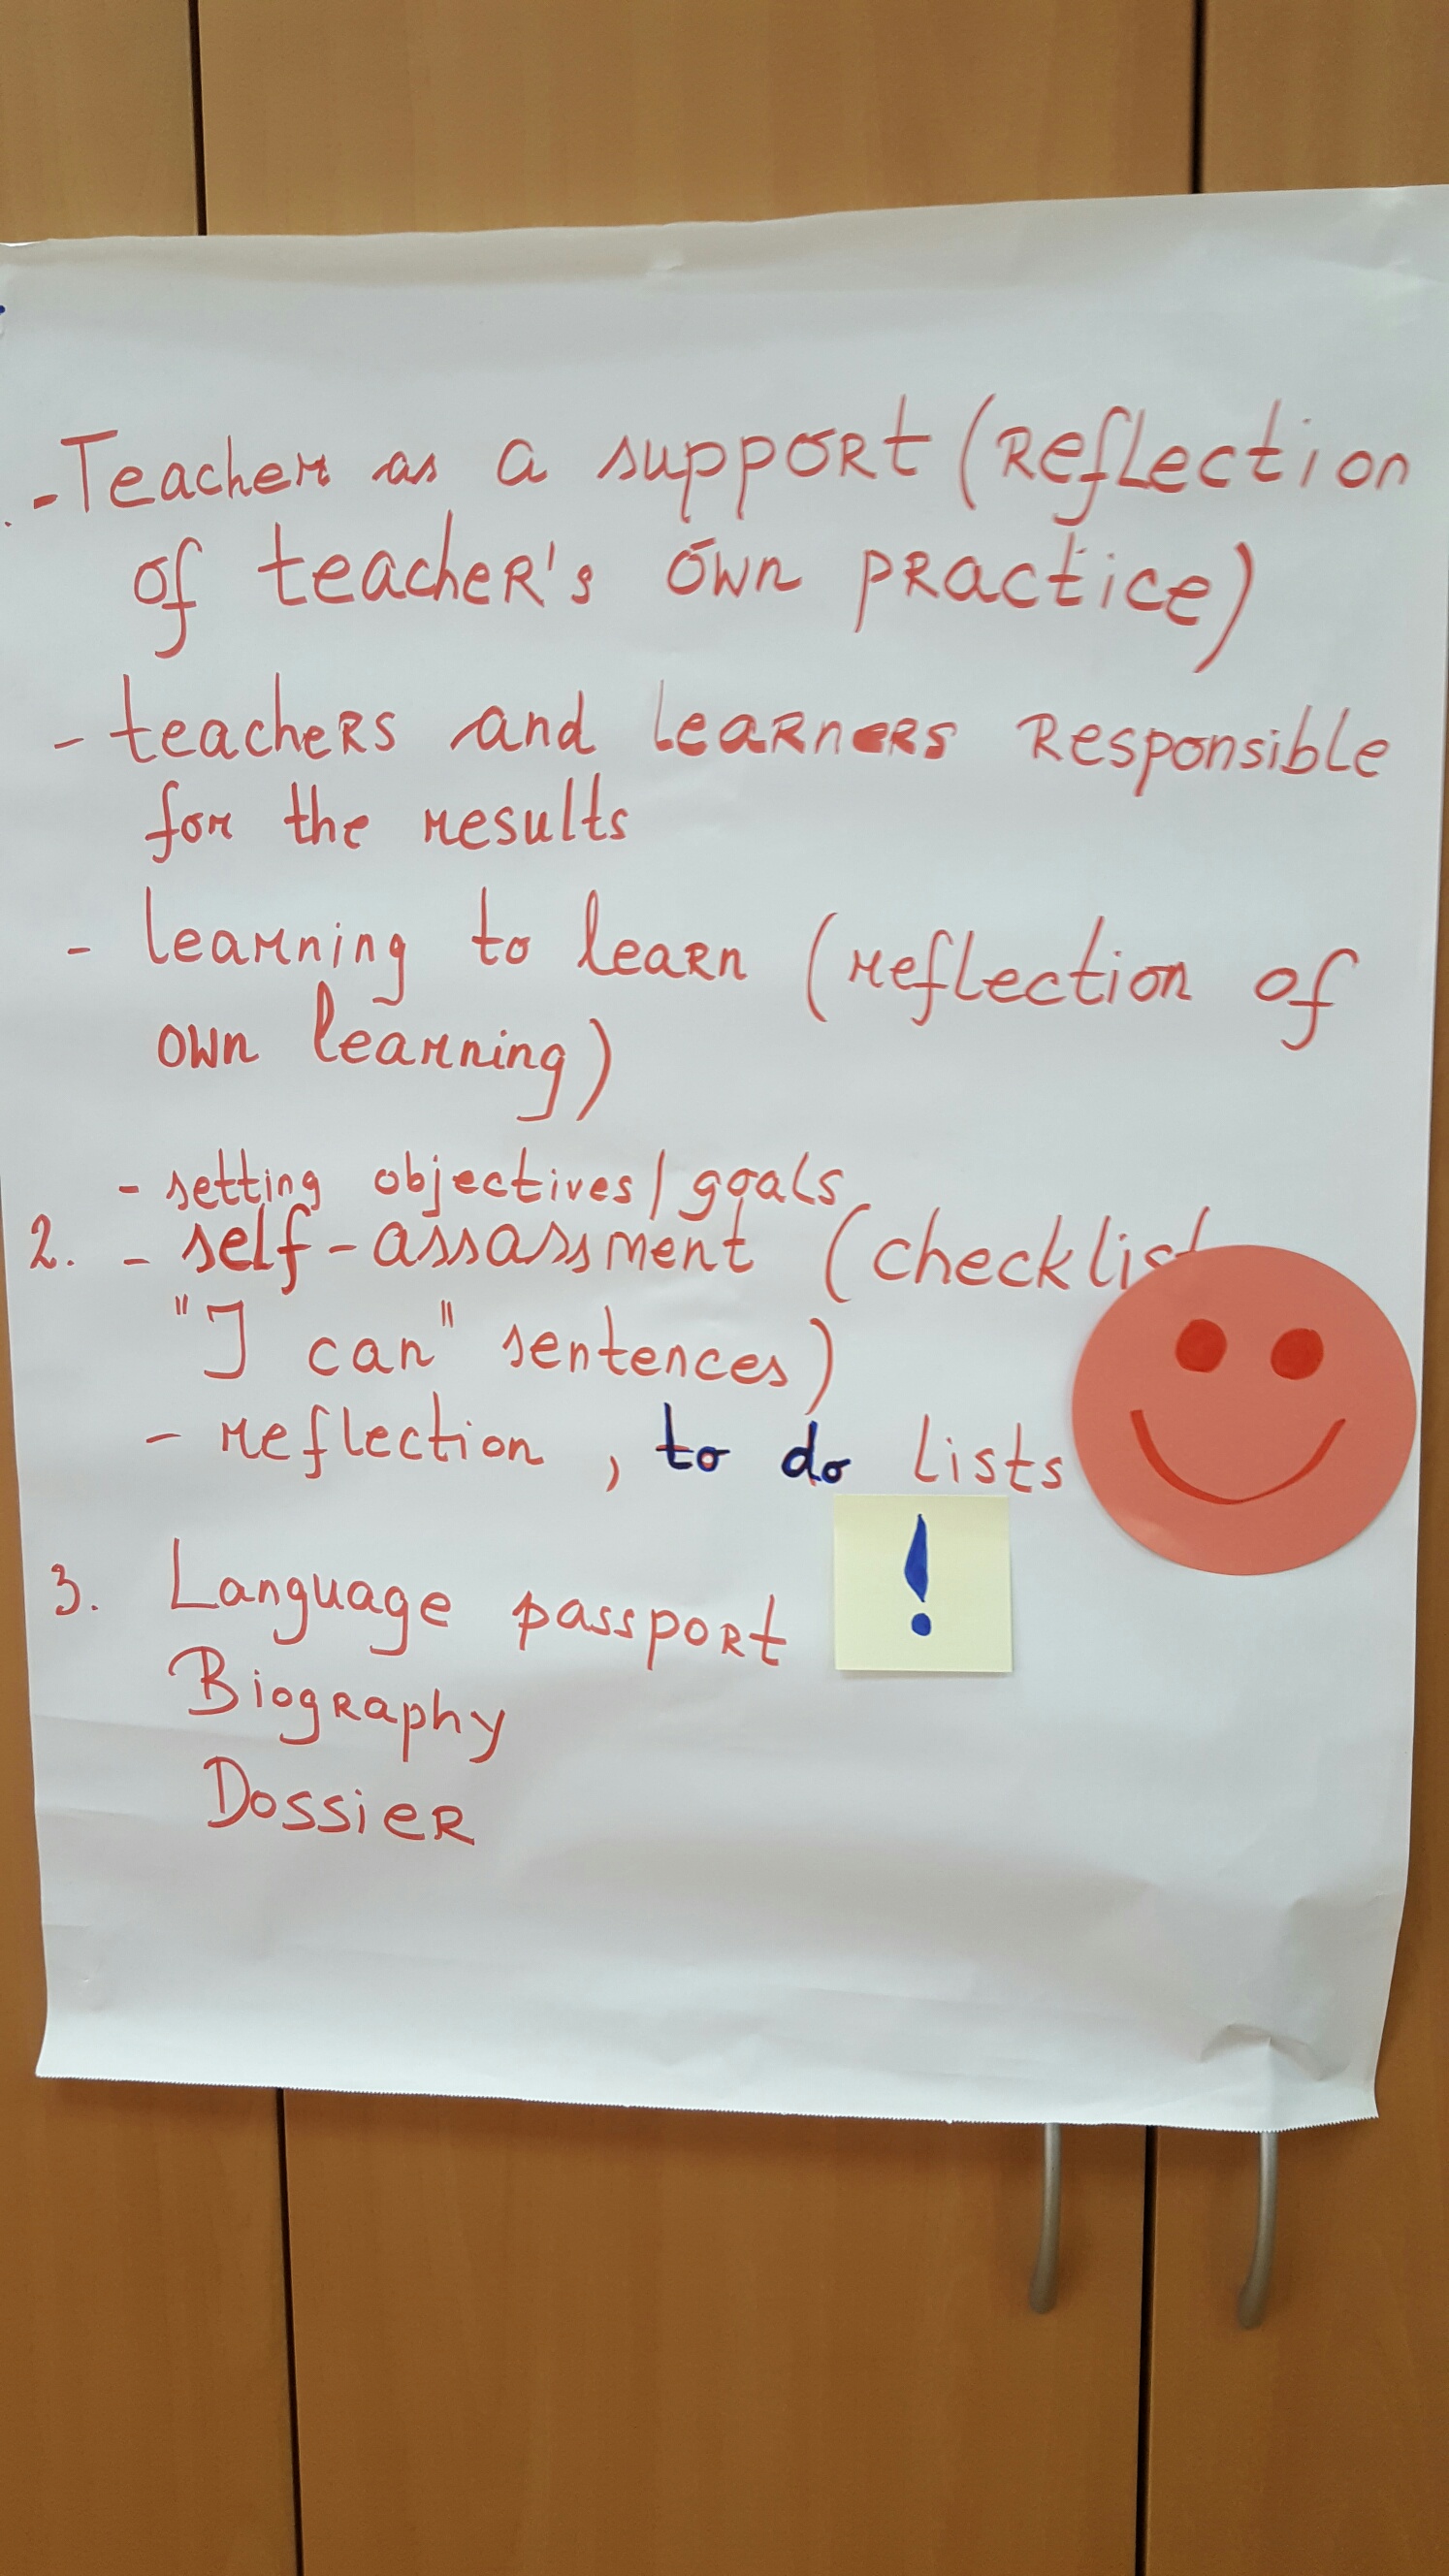 - Teacher as a support (Reflection
of teacher's own practice)
- teachers and learners Responsible
for the results
- learning to learn (reflection of
own learning)
- setting objectives/goals
2. - self-assassment (checklist
"I can" sentences)
- reflection, to do lists
!
3. Language passport
Biography
Dossier